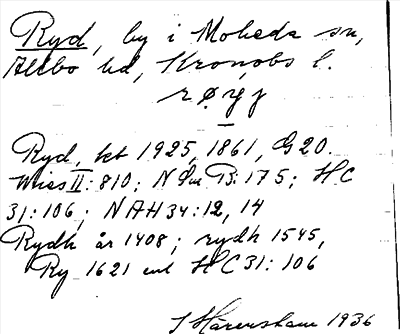 Ryd, by i Moheda sn,
Allbo hd, Kronobs l.
røyj
Ryd, kt 1925, 1861, G 20.
Wies II: 810; NSm B: 175; HC
31: 106; NAH 34: 12, 14
Rydh år 1408; rydh 1545,
Ry 1621 enl HC 31: 106
J Hårenstam 1936